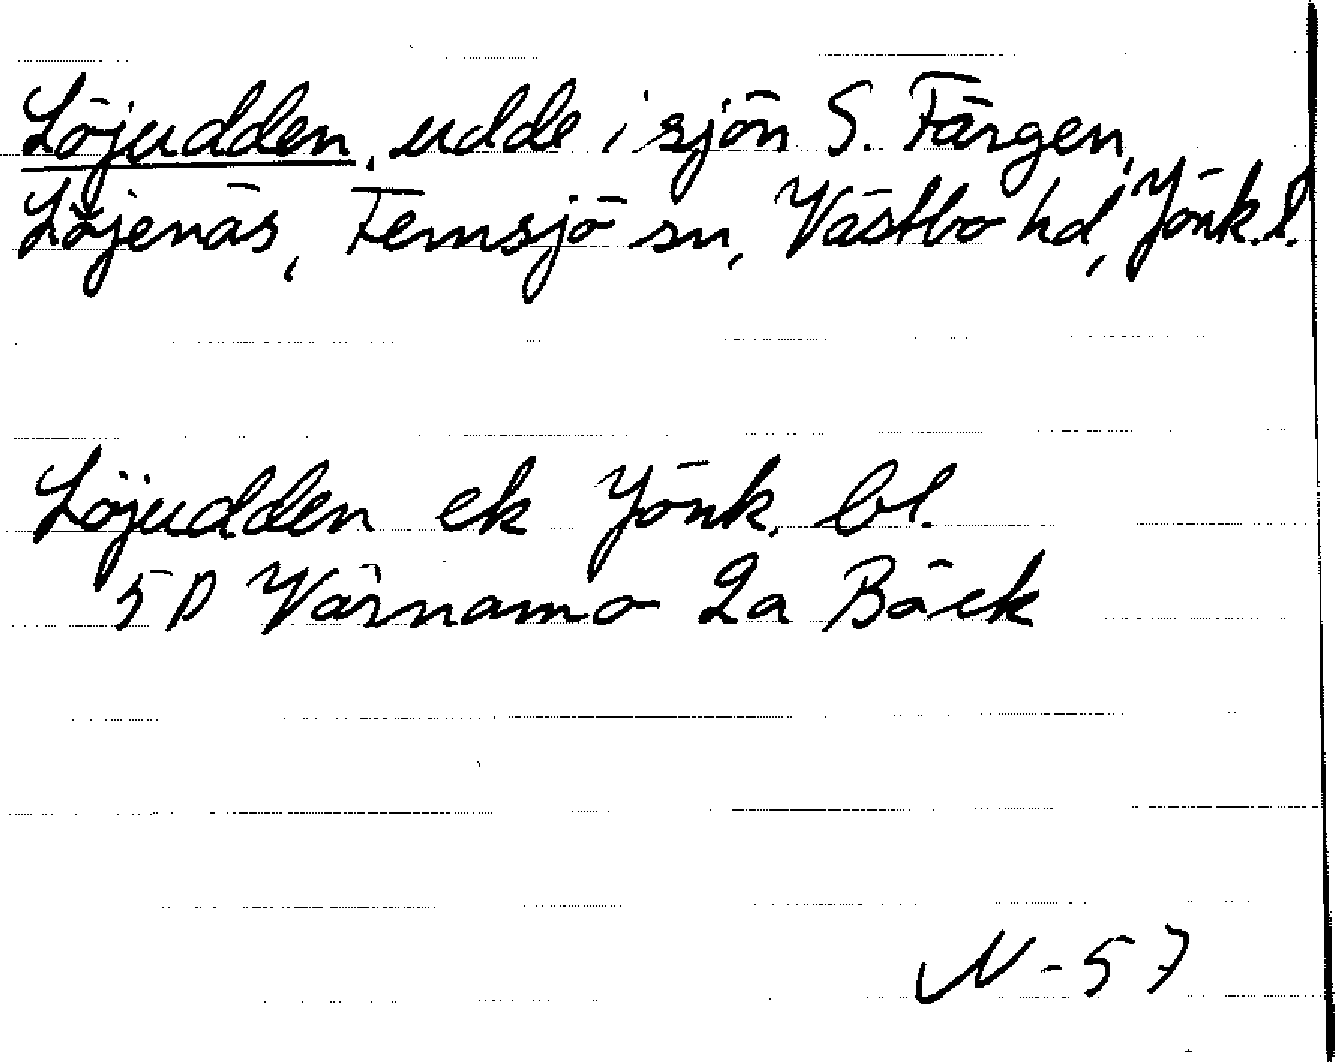 Löjudden, udde i sjön S. Färgen,
Löjenäs, Femsjö sn, Västbo hd, Jönk.l.
Löjudden ek Jönk. bl.
5 D Värnamo 2a Bäck
N-57